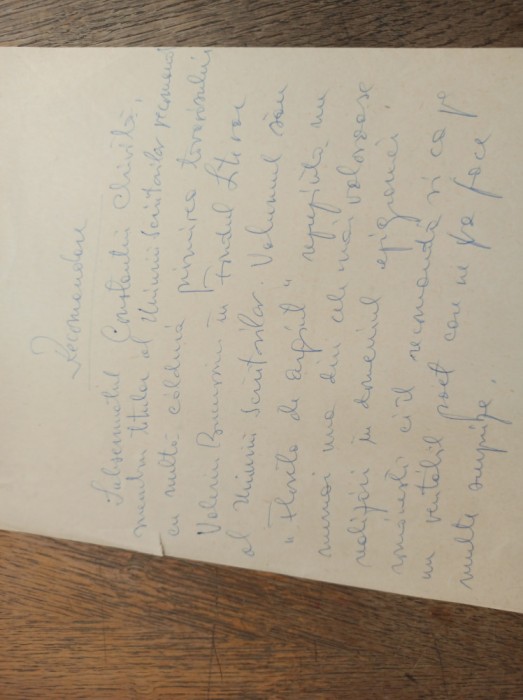 Recomandare
Subsemnatul Constantin Chiriță,
membru titular al Uniunii scriitorilor recomand
cu multă căldură primirea tovarășului
Valeriu în Fondul Literar
al Uniunii Scriitorilor. Volumul său
"Florile de argint" reprezintă nu
numai una din cele mai valoroase
realizări în domeniul epigramei
românești ci îl recomandă și ca pe
un veritabil poet care ne va face
multe surprize.